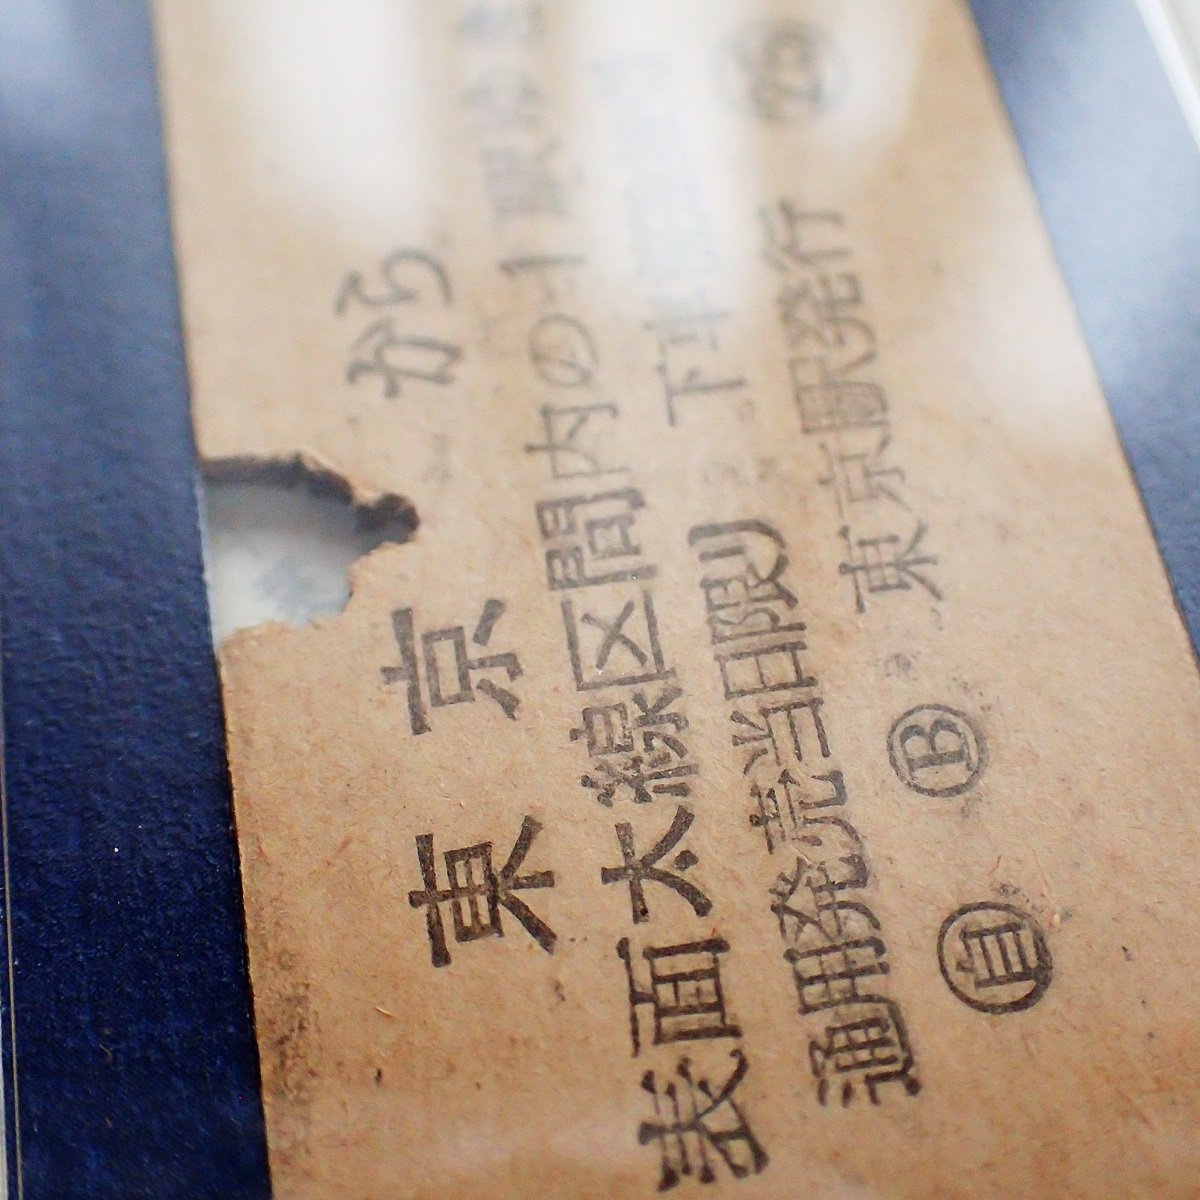 東京から
表面太線区間内の1駅ゆき
通用発売当日限り 下車
東京駅発行
㊂ Ⓑ 25